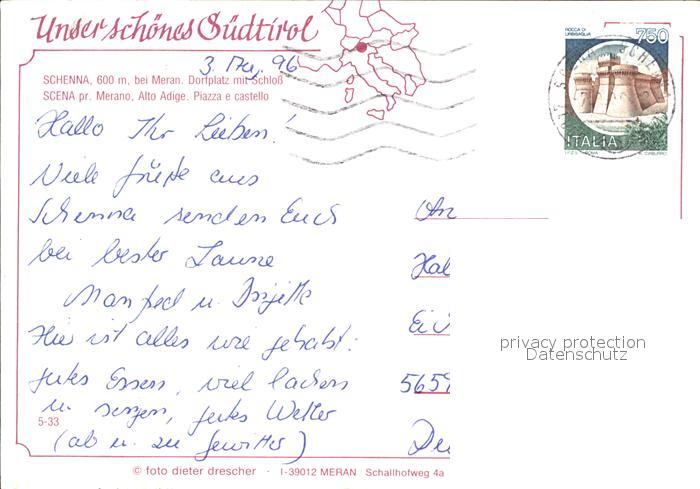 Unser schönes Südtirol
3. Mai, 96
SCHENNA, 600 m, bei Meran. Dorfplatz mit Schloß
SCENA pr. Merano, Alto Adige. Piazza e castello
ROCCA DI
URBISAGLIA
750
ITALIA
Hallo Ihr Lieben!
Viele Grüße aus
Schenna senden Euch
bei bester Laune
Manfred u. Brigitte
Hier ist alles wie gehabt:
gutes Essen, viel lachen
u. singen, gutes Wetter
(ab u. zu Gewitter)
An
Hal
5659
privacy protection
Datenschutz
5-33
© foto dieter drescher · I-39012 MERAN Schallhofweg 4a